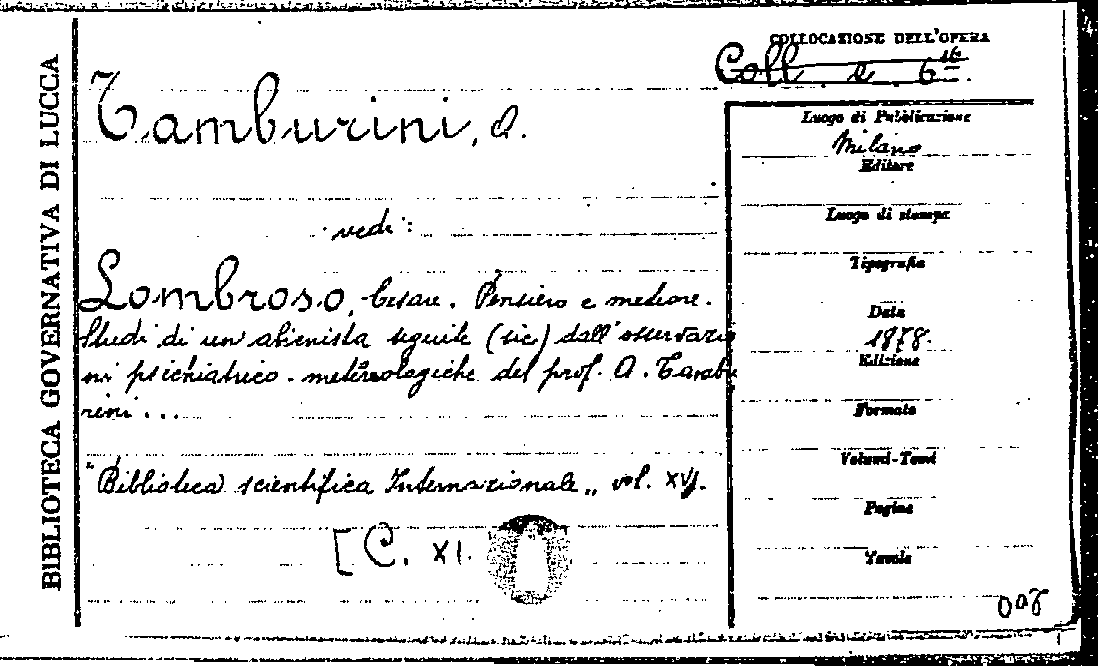 BIBLIOTECA GOVERNATIVA DI LUCCA
COLLOCAZIONE DELL'OPERA
Coll. e. 6 16.
Tamburini, A.
vedi:
Lombroso, Cesare. Pensiero e meteore.
Studi di un alienista seguite (sic) dall'osservazio
ni psichiatrico-metereologiche del prof. A. Tambu
rini...
"Biblioteca scientifica Internazionale„ vol. XVI.
[C. XI.
Luogo di Pubblicazione
Milano
Editore
Luogo di stampa
Tipografia
Data
1878.
Edizione
Formato
Volumi-Tomi
Pagine
Tavole